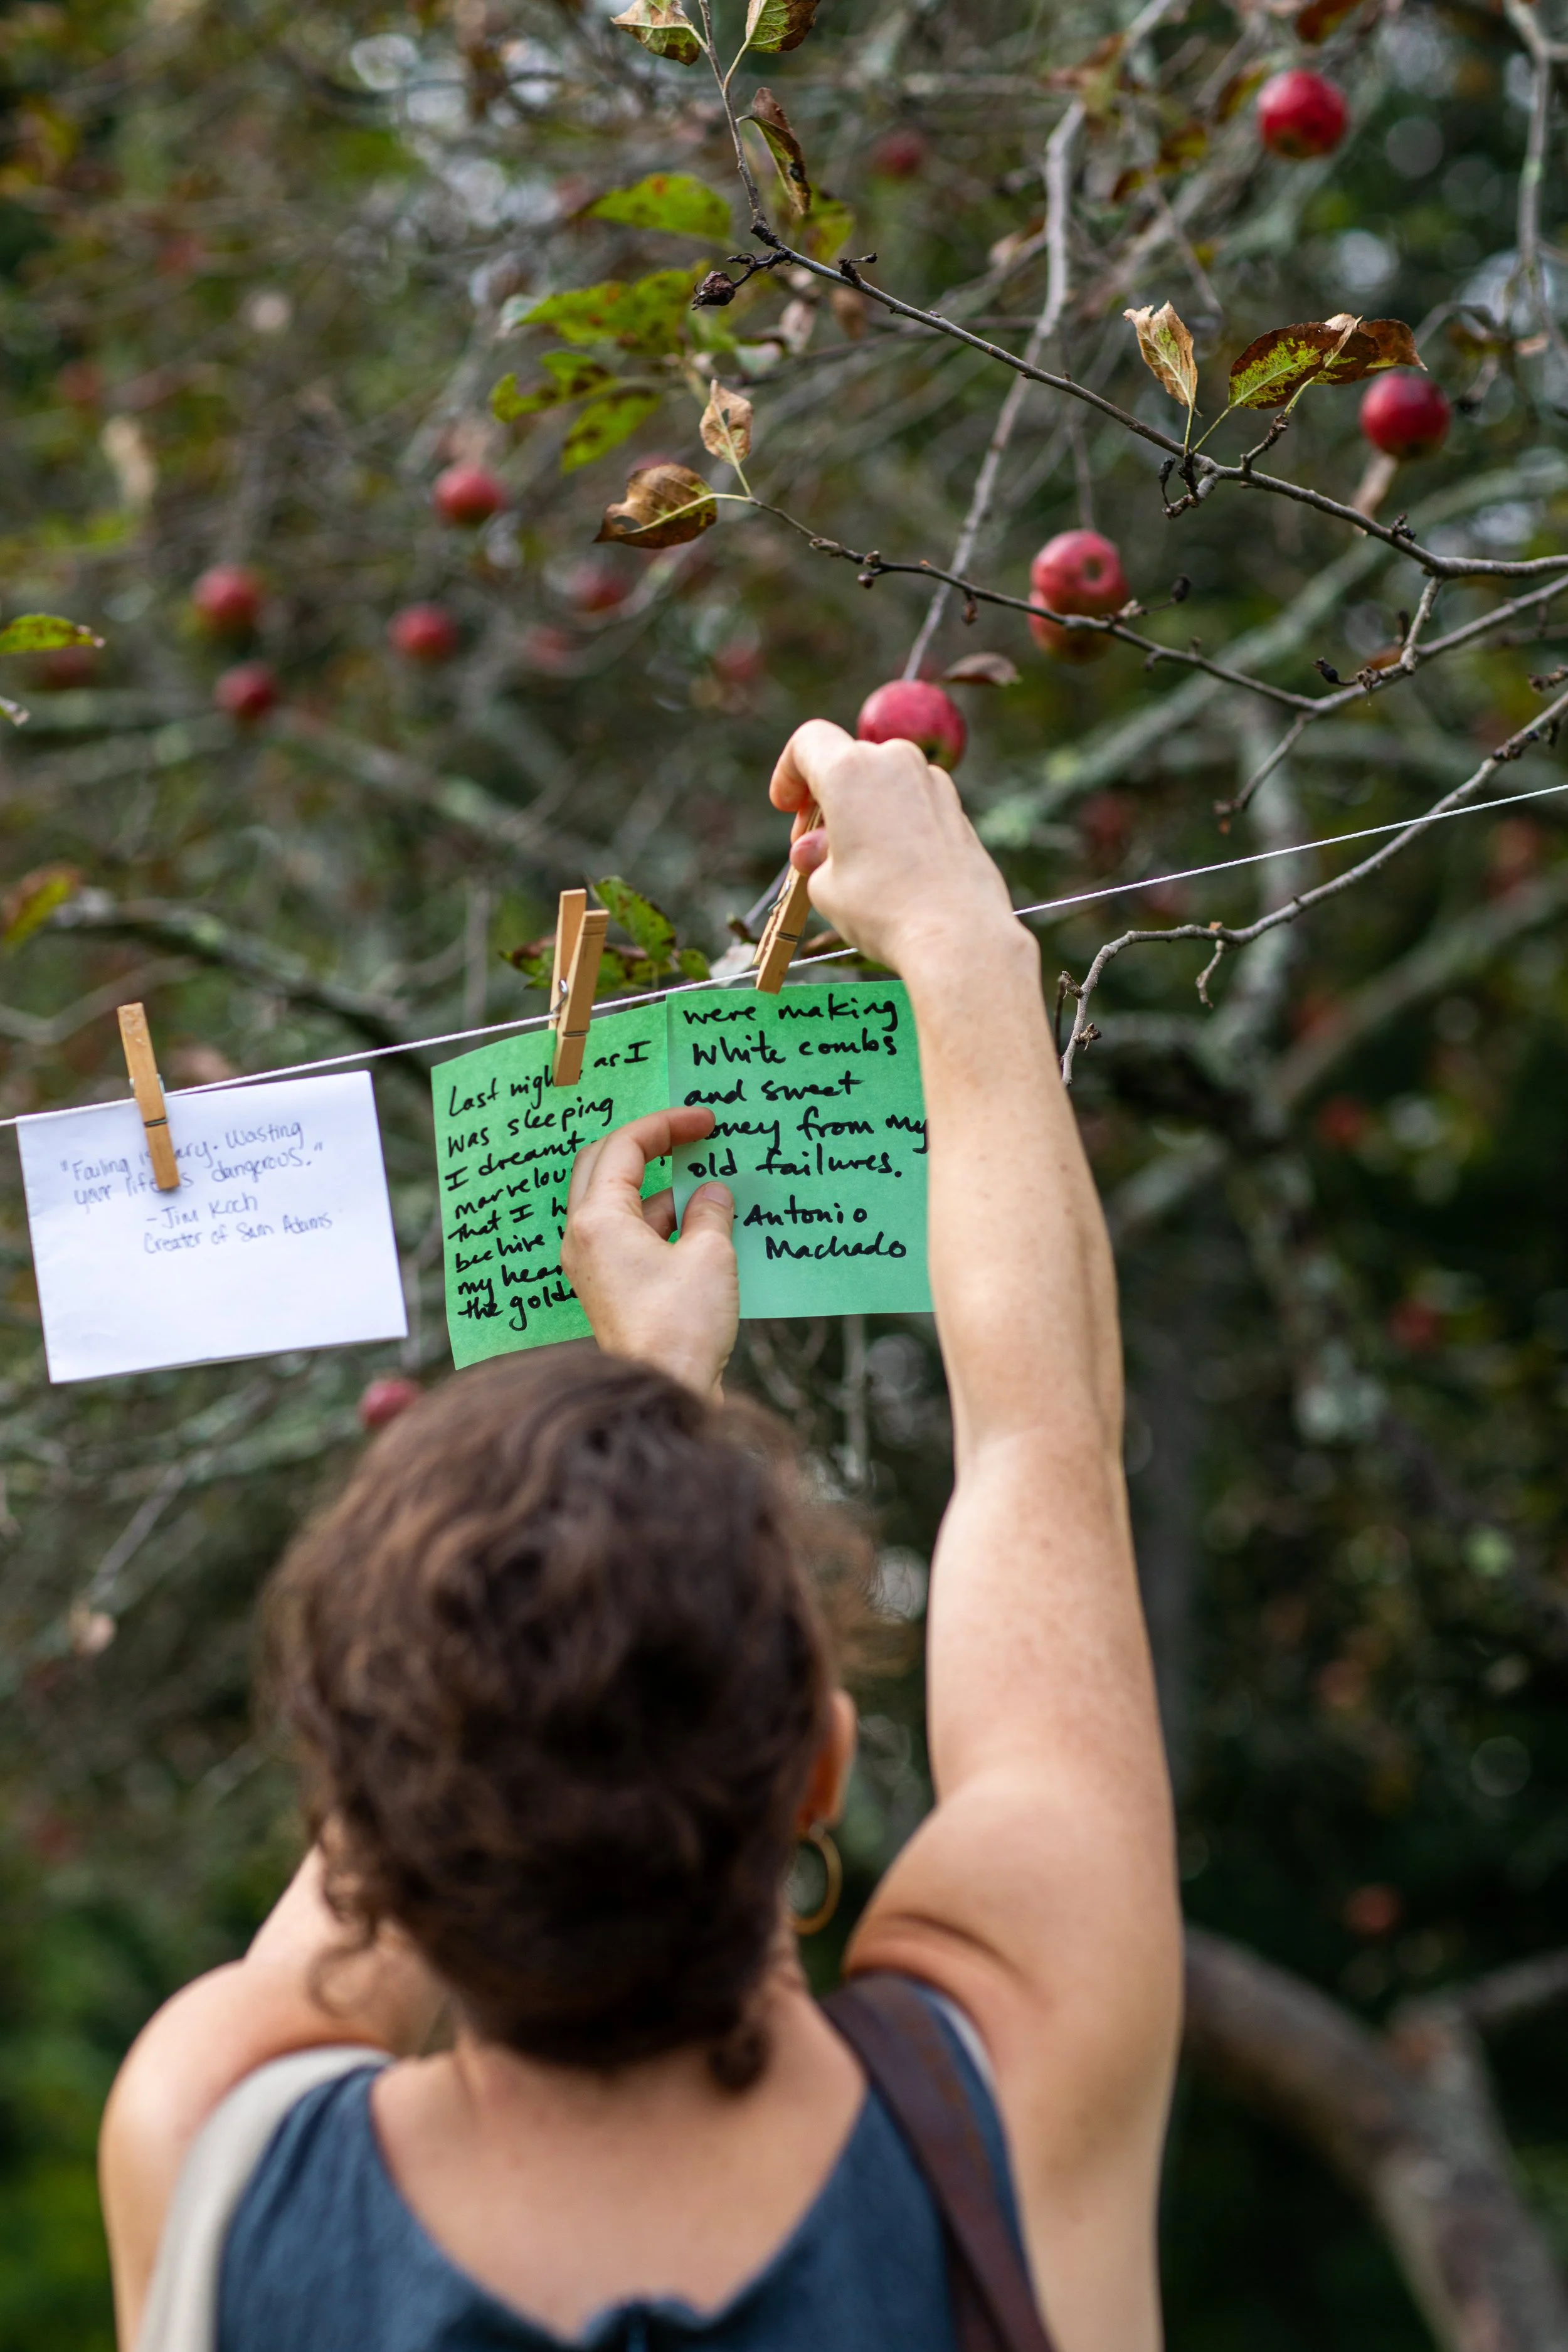 "Failing is scary. Wasting
your life is dangerous."
- Jim Koch
Creater of Sam Adams
Last nigh as I
was sleeping
I dreamt
marvelou
That I h
beehive
my hear
the golde
were making
White combs
and sweet
oney from my
old failures.
- Antonio
Machado